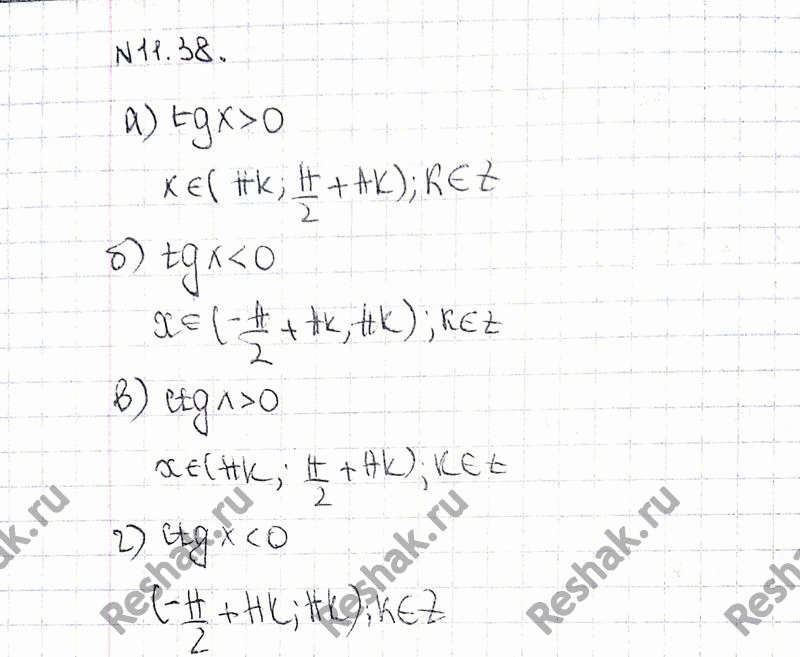 N11.38.
а) tgx>0
x∈(πk; π/2+πk);k∈Z
б) tgx<0
x∈(-π/2+πk;πk);k∈Z
в) ctgx>0
x∈(πk; π/2+πk);k∈Z
г) ctgx<0
(-π/2+πk;πk);k∈Z
Reshak.ru
Reshak.ru
Reshak.ru
Reshak.ru
ak.ru